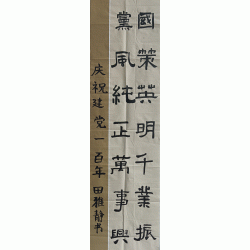 國策英明千業振
黨風純正萬事興
庆祝建党一百年田雅静书